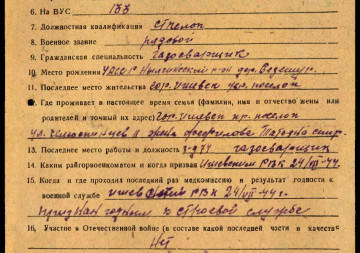 6. На ВУС 133
7. Должностная квалификация стрелок
8. Военное звание рядовой
9. Гражданская специальность газосварщик
10. Место рождения УАССР р-он дер.
11. Последнее место жительства гор. Ижевск поселок
12. Где проживает в настоящее время семья (фамилия, имя и отчество жены или
родителей и точный их адрес) гор. Ижевск поселок
ул. жена
13. Последнее место работы и должность з-д 74 газосварщик
14. Каким райгорвоенкоматом и когда призван Ижевским РВК 24/VII-44 г.
15. Когда и где проходил последний раз медкомиссию и результат годности к
военной службе РВК 24/VII-44 г.
признан годным к строевой службе
16. Участие в Отечественной войне (в составе какой последней части и качеств
Нет